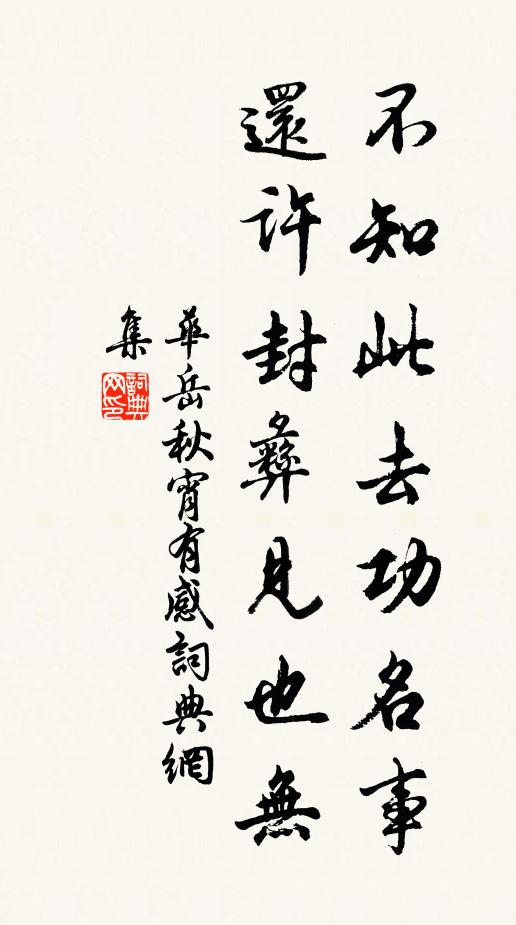 不知此去功名事
還許封彝見也無
華岳秋宵有感詞典網
集
詞典
网印